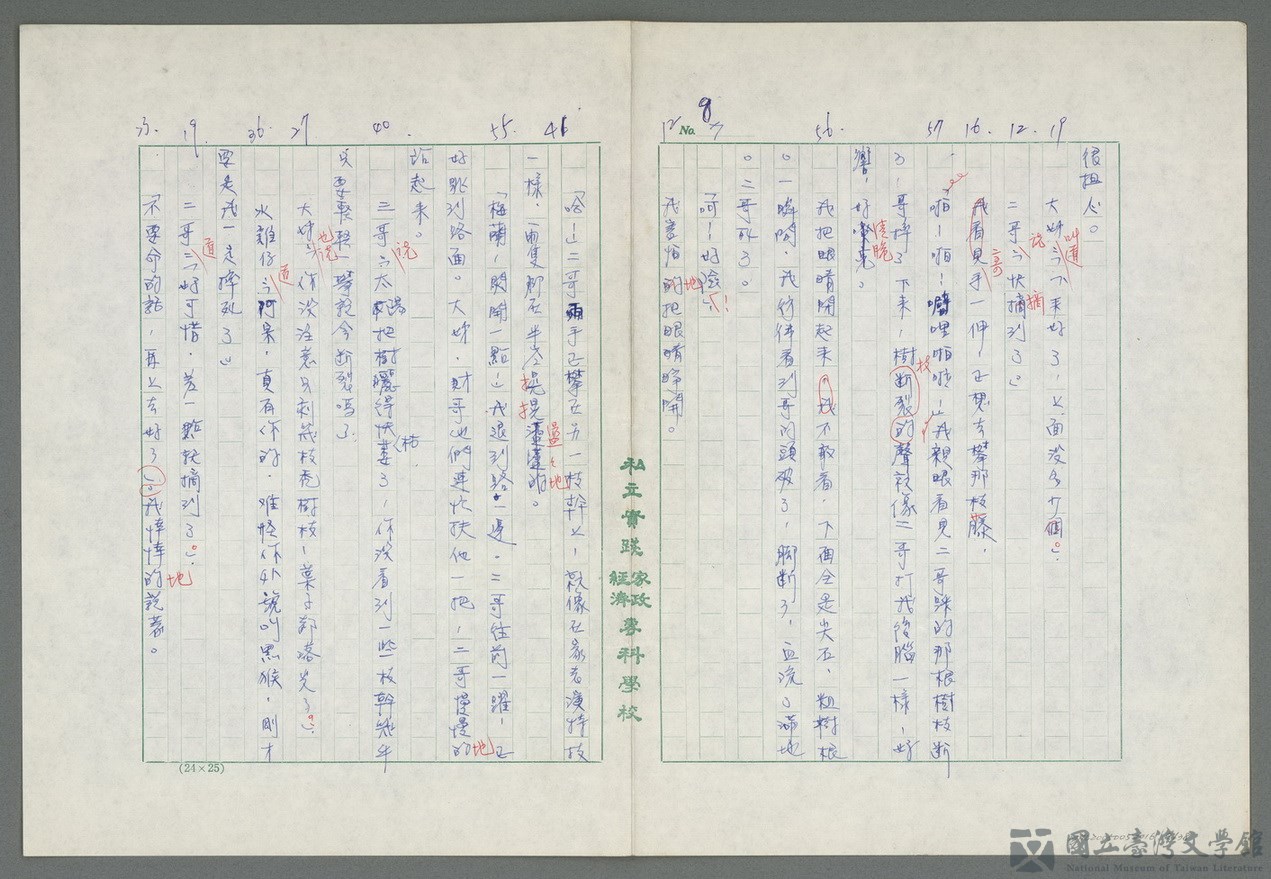 19 12. 16. 57 56. 8 No. 7 12
很扭人。
大妳:「下來好了,上面沒多少個。」
叫道
二哥:「快摘到了。」
說 摘
我看見二哥手一伸,正想去攀那枝藤,
「啪!啪!噼哩啪啦!」我親眼看見二哥踩的那根樹枝斷
了,哥摔了下來,樹枝斷裂的聲就像二哥打我後腦一樣,好
響,好清脆。
我把眼睛閉起來,我不敢看,下面全是尖石,粗樹根
。一瞬間,我彷彿看到哥的頭破了,腳斷了,血流了滿地
。二哥死了。
「呵!好險!」
我害怕地把眼睛睜開。
私立實踐家政經濟專科學校
46 55. 40. 27 36. 19. 23.
「哈!」二哥兩手已攀在另一枝幹上,就像在家看演特技
一樣,兩隻腳在半空搖搖盪盪地。
「梅蘭,閃開一點。」我退到路一邊,二哥往前一躍,正
好跳到路面。大妳,財哥他們連忙扶他一把,二哥慢慢地
站起來。
三哥說:「太陽把樹曬得快枯萎了,你沒看到一些枝幹幾乎
只要輕輕一攀就會斷裂嗎?」
大妳也說:「你沒注意只剩幾枝禿樹枝,葉子都落光了。」
火雞仔道:「阿呆,真有你的,難怪你外號叫黑猴,剛才
要是我一定摔死了。」
二哥道:「好可惜,差一點就摘到了。」
「不要命的話,再上去好了。」我悻悻地說著。
(24×25)
國立臺灣文學館
National Museum of Taiwan Literature